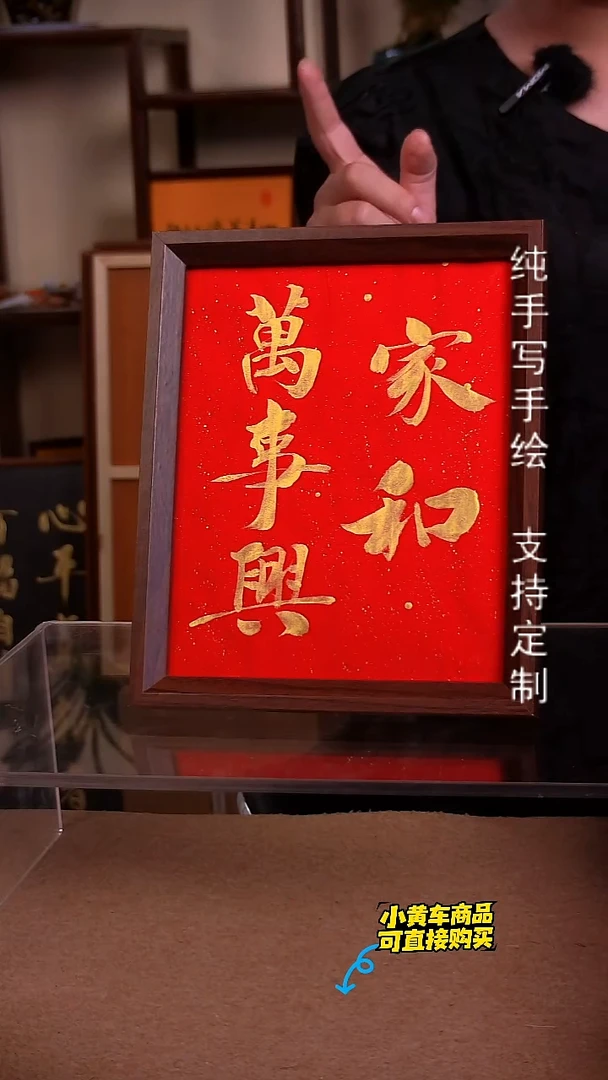 家和
萬事興
纯手写手绘 支持定制
小黄车商品
可直接购买
心平